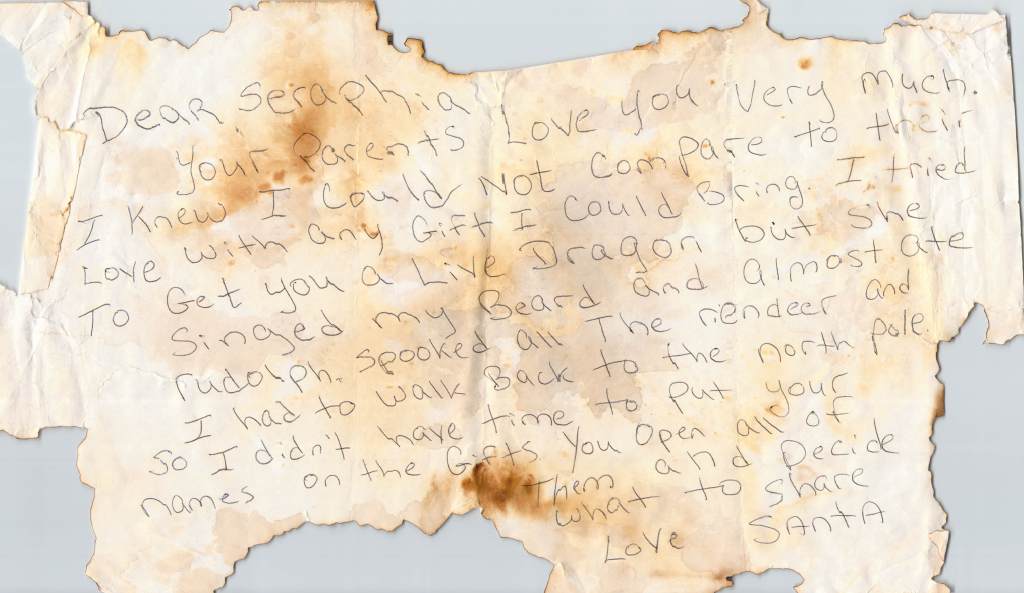 Dear Seraphia
Your Parents Love you very much.
I Knew I Could Not Compare to their
Love with any Gift I Could Bring. I tried
To Get you a Live Dragon but she
Singed my Beard and almost ate
rudolph. spooked all The riendeer and
I had to walk Back to the north pole.
So I didn't have time to put your
names on the Gifts You Open all of
Them and Decide
what to share
Love SANTA